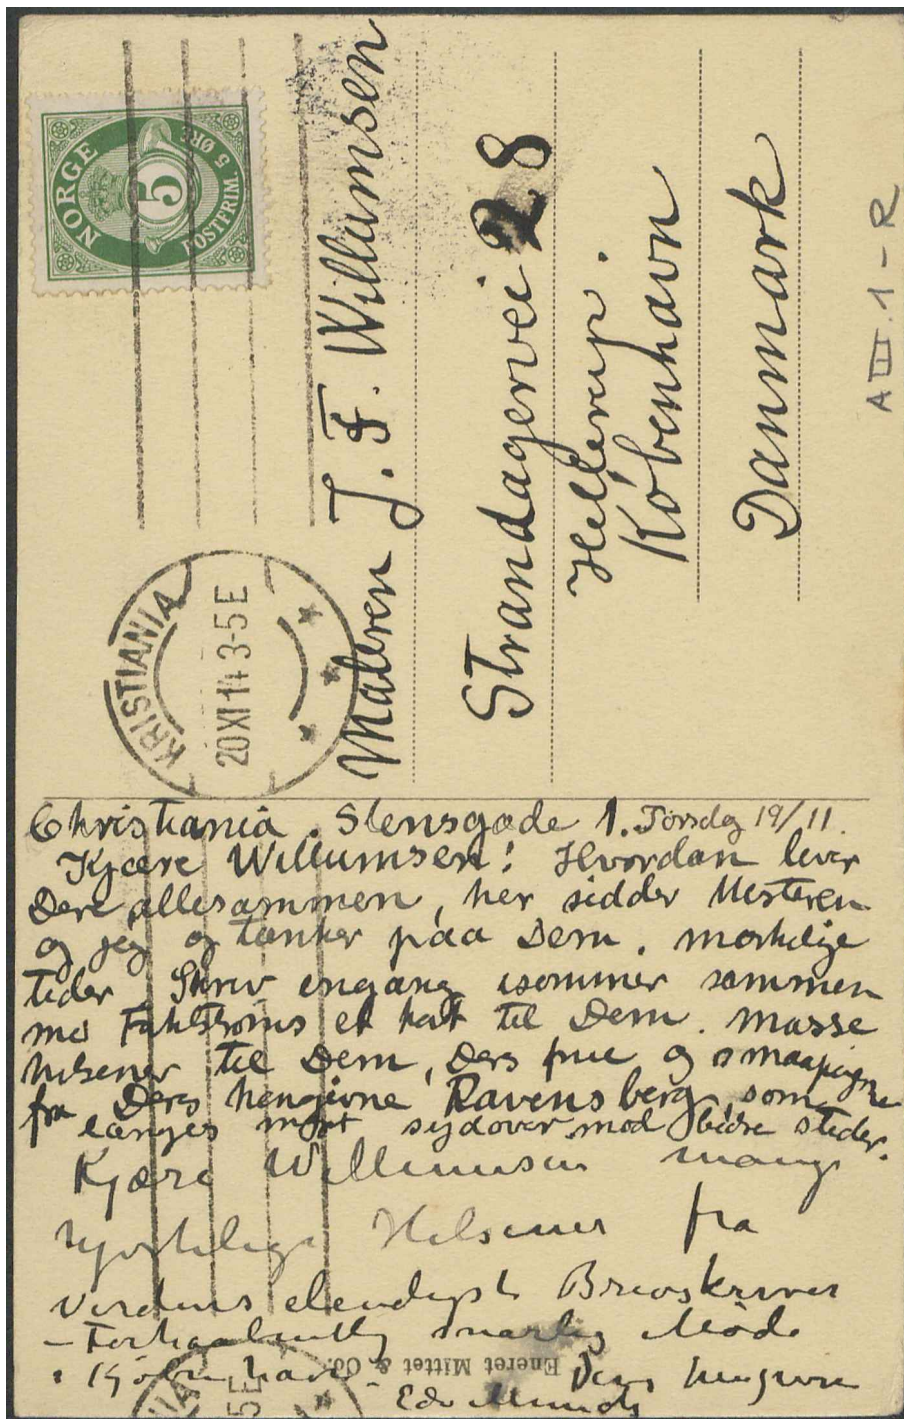 NORGE
5
POSTFRIM. 5 ØRE
KRISTIANIA
20 XI 14 3-5 E
Maleren J. F. Willumsen
Strandagervei 28
Hellerup.
København
Danmark
A III. 1 - R
Christiania. Stensgade 1. Torsdag 19/11.
Kjære Willumsen! Hvordan lever
Dere allesammen, her sidder Mesteren
og jeg og tænker paa Dem. mærkelige
tider. Skrev engang isommer sammen
me Fahlstrøms et kort til Dem. Masse
hilsener til Dem, Ders frue og smaapigene
fra Deres hengivne Ravensberg, som
længes mort sydover mod bedre steder.
Kjære Willumsen mange
hjertelige Hilsener fra
Verdens elendigste Brevskriver
– Forhaabentlig snarlig Møde
i Kjøbenhavn – Deres hengivne
Edv Munch
Eneret Mittet & Co.
IA
5 E